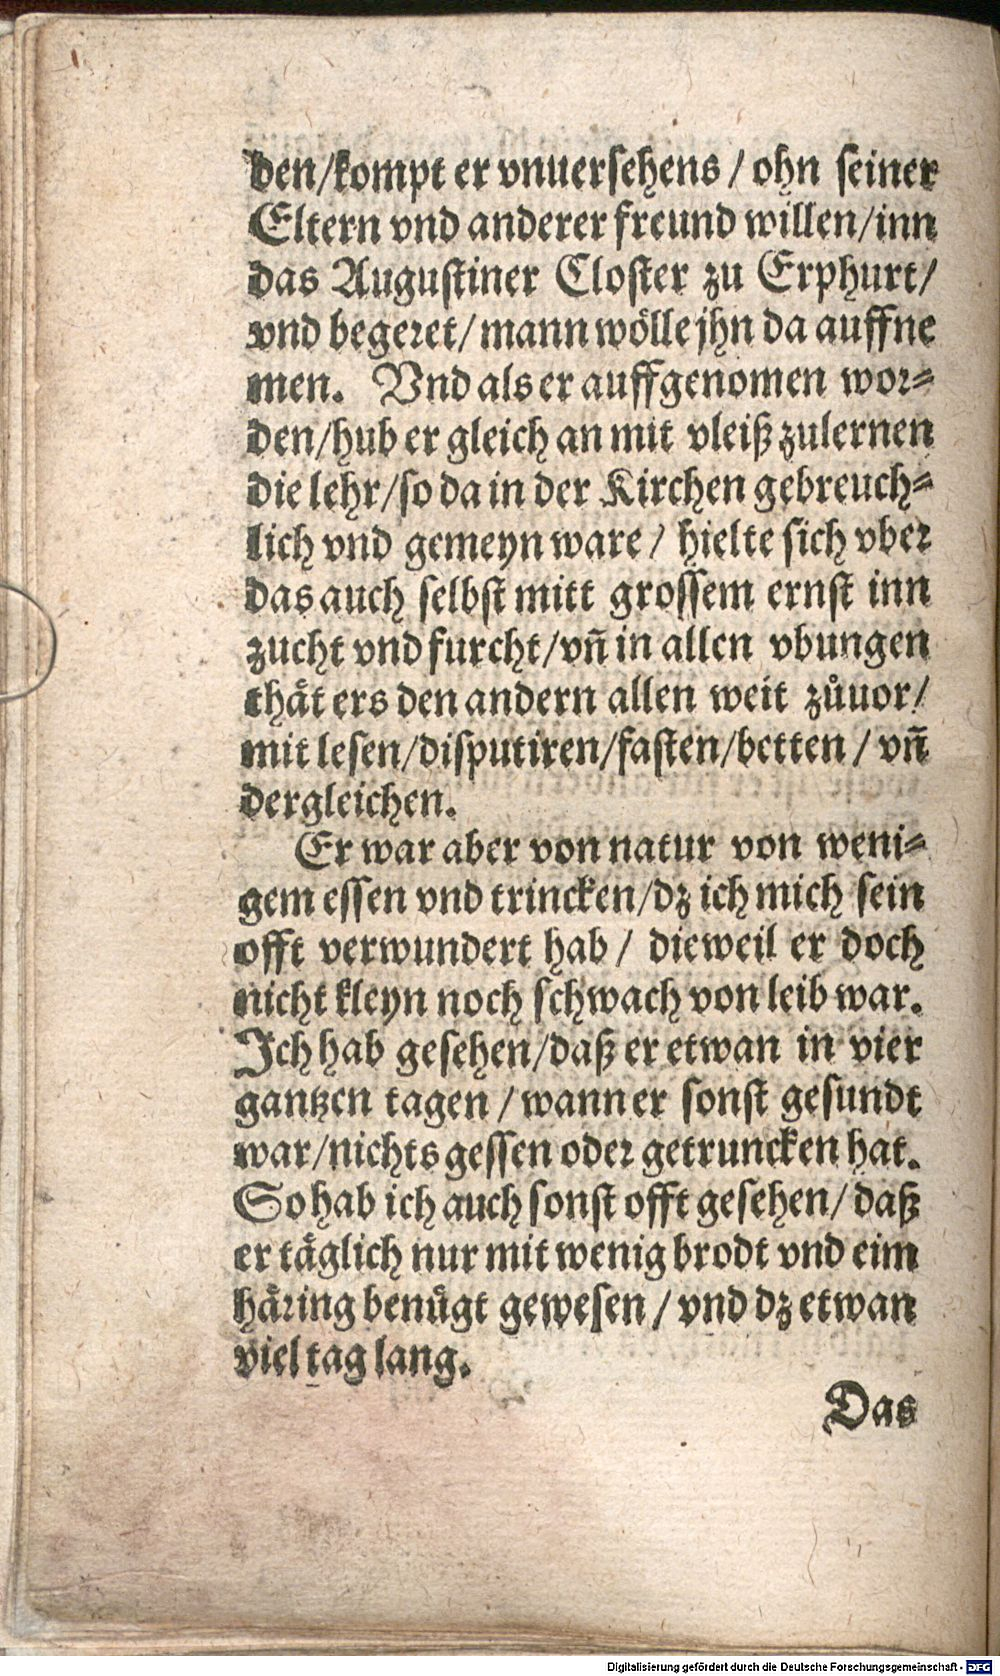 den/kompt er vnuersehens / ohn seiner
Eltern vnd anderer freund willen/inn
das Augustiner Closter zu Erphurt/
vnd begeret/mann wölle jhn da auffne
men. Vnd als er auffgenomen wor⸗
den/hub er gleich an mit vleiß zulernen
die lehr/so da in der Kirchen gebreuch⸗
lich vnd gemeyn ware / hielte sich vber
das auch selbst mitt grossem ernst inn
zucht vnd furcht/vn̄ in allen vbungen
thät ers den andern allen weit zůuor/
mit lesen/disputiren/fasten/betten / vn̄
dergleichen.
Er war aber von natur von weni⸗
gem essen vnd trincken/dz ich mich sein
offt verwundert hab / dieweil er doch
nicht kleyn noch schwach von leib war.
Ich hab gesehen/daß er etwan in vier
gantzen tagen / wann er sonst gesundt
war/nichts gessen oder getruncken hat.
So hab ich auch sonst offt gesehen/ daß
er täglich nur mit wenig brodt vnd eim
häring benügt gewesen / vnd dz etwan
viel tag lang.
Das
Digitalisierung gefördert durch die Deutsche Forschungsgemeinschaft - DFG